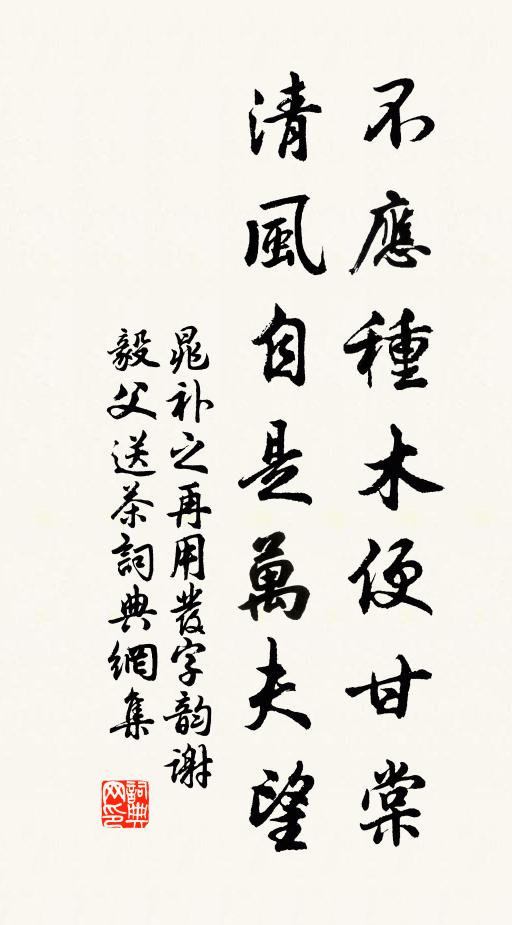 不應種木便甘棠
清風自是萬夫望
晁补之再用發字韵謝
毅父送茶詞典網集
詞典
网印